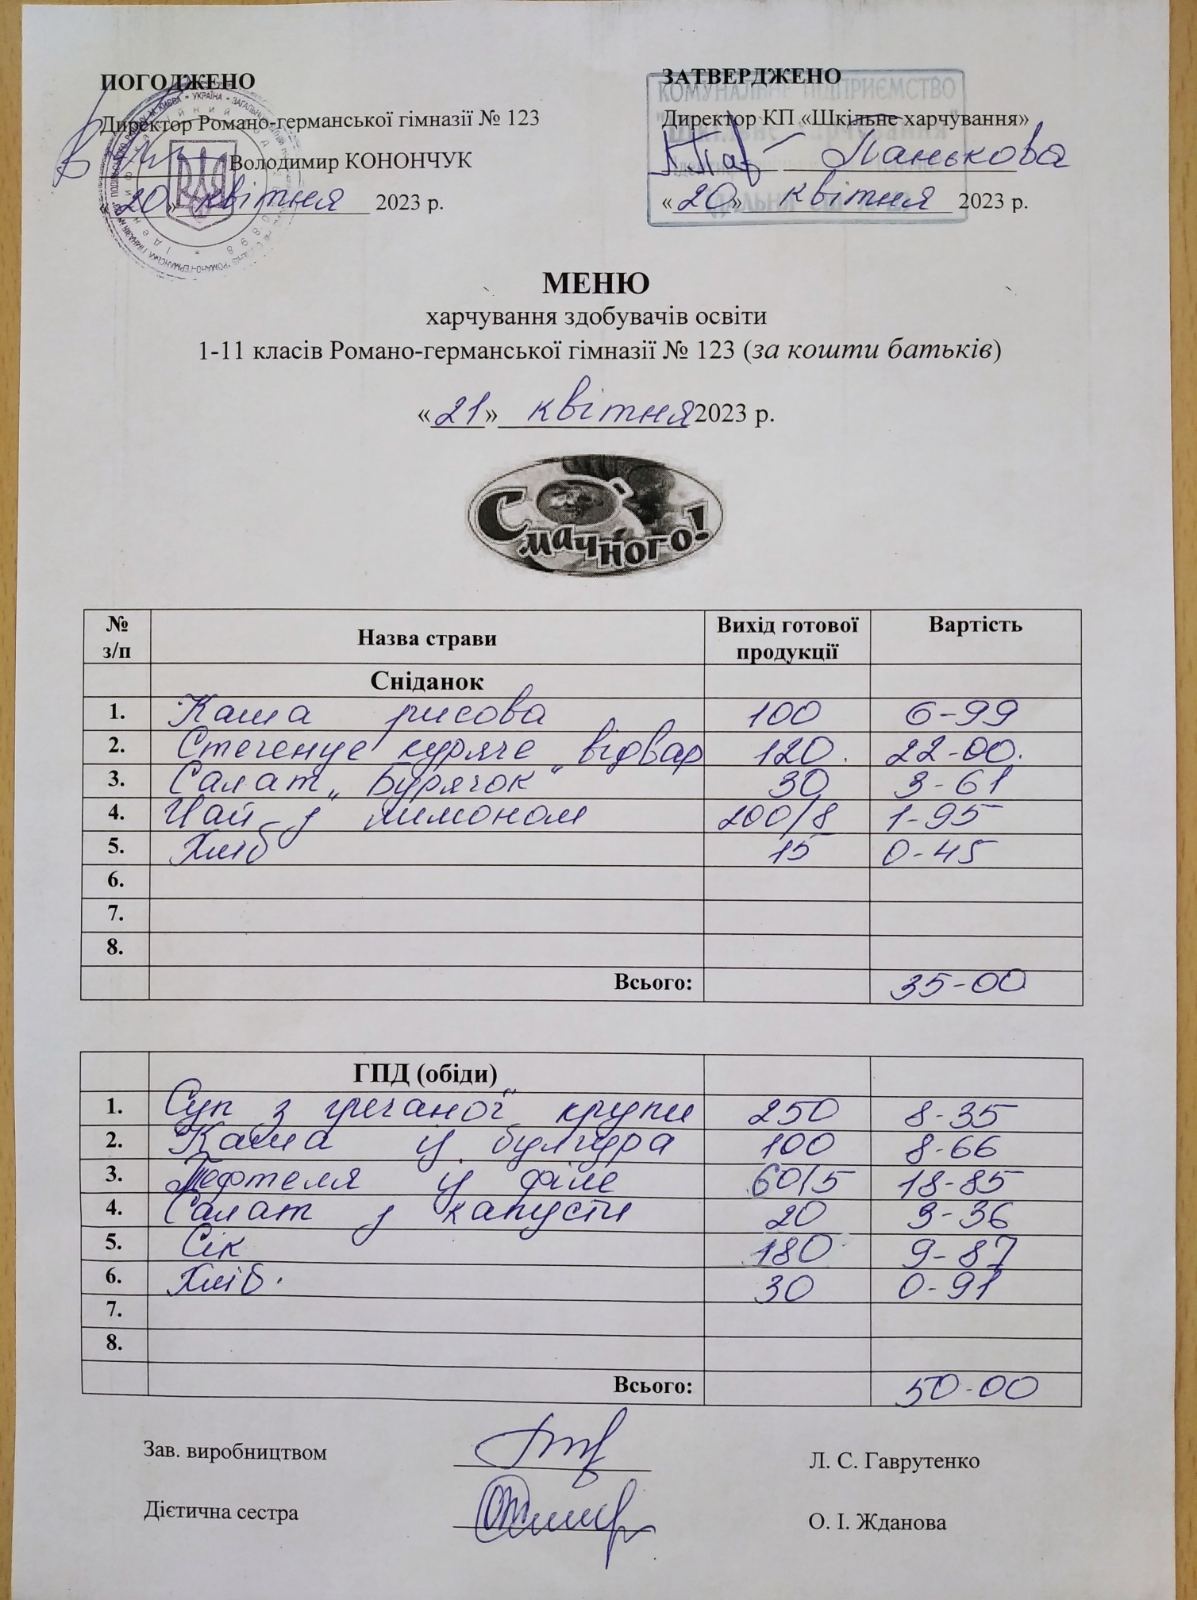 ПОГОДЖЕНО
Директор Романо-германської гімназії № 123
Володимир КОНОНЧУК
«20» квітня 2023 р.
ЗАТВЕРДЖЕНО
КОМУНАЛЬНЕ ПІДПРИЄМСТВО
Директор КП «Шкільне харчування»
Панькова
«20» квітня 2023 р.
МЕНЮ
харчування здобувачів освіти
1-11 класів Романо-германської гімназії № 123 (за кошти батьків)
«21» квітня 2023 р.
Смачного!
№ з/п Назва страви Вихід готової продукції Вартість
Сніданок
1. Каша рисова 100 6-99
2. Стегенце куряче відвар 120. 22-00.
3. Салат „Бурячок" 30 3-61
4. Чай з лимоном 200/8 1-95
5. Хліб 15 0-45
6.
7.
8.
Всього: 35-00
ГПД (обіди)
1. Суп з гречаної крупи 250 8-35
2. Каша із булгура 100 8-66
3. Тефтеля із філе 60/5 18-85
4. Салат з капусти 20 3-36
5. Сік 180 9-87
6. Хліб. 30 0-91
7.
8.
Всього: 50-00
Зав. виробництвом Л. С. Гаврутенко
Дієтична сестра О. І. Жданова